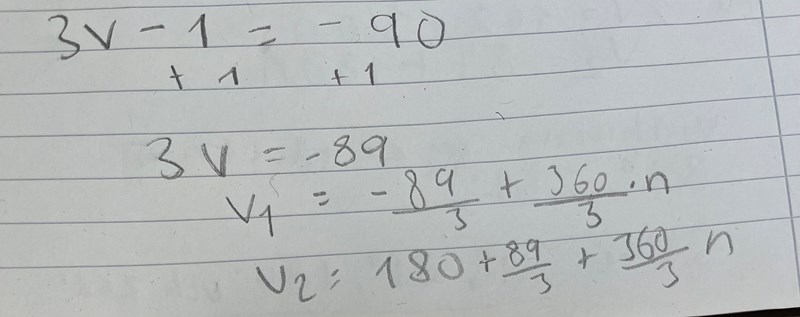 3v - 1 = - 90
+ 1 + 1
3v = -89
v₁ = - 89/3 + 360/3 · n
v₂ = 180 + 89/3 + 360/3 n